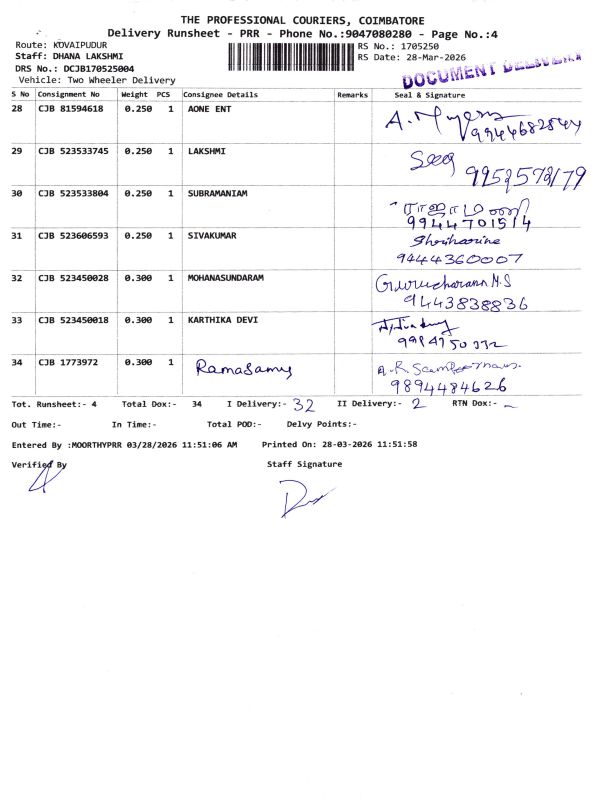 THE PROFESSIONAL COURIERS, COIMBATORE
Delivery Runsheet - PRR - Phone No.:9047080280 - Page No.:4
Route: KOVAIPUDUR
RS No.: 1705250
Staff: DHANA LAKSHMI
RS Date: 28-Mar-2026
DRS No.: DCJB170525004
Vehicle: Two Wheeler Delivery
DOCUMENT DELIVERY
S No Consignment No Weight PCS Consignee Details Remarks Seal & Signature
28 CJB 81594618 0.250 1 AONE ENT
29 CJB 523533745 0.250 1 LAKSHMI
30 CJB 523533804 0.250 1 SUBRAMANIAM
9944701514
31 CJB 523606593 0.250 1 SIVAKUMAR
9444360007
32 CJB 523450028 0.300 1 MOHANASUNDARAM Gurucharann M.S
9443838836
33 CJB 523450018 0.300 1 KARTHIKA DEVI
34 CJB 1773972 0.300 1 Ramasamy
9894484626
Tot. Runsheet:- 4 Total Dox:- 34 I Delivery:- 32 II Delivery:- 2 RTN Dox:- -
Out Time:- In Time:- Total POD:- Delvy Points:-
Entered By :MOORTHYPRR 03/28/2026 11:51:06 AM Printed On: 28-03-2026 11:51:58
Verified By Staff Signature